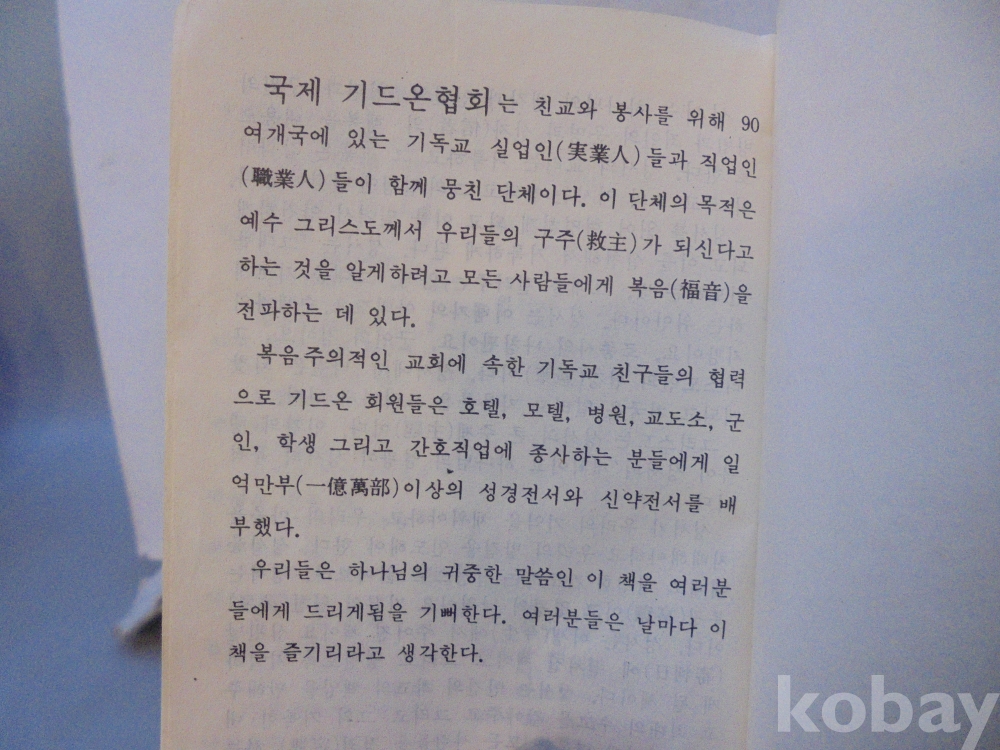 국제 기드온협회는 친교와 봉사를 위해 90
여개국에 있는 기독교 실업인(実業人)들과 직업인
(職業人)들이 함께 뭉친 단체이다. 이 단체의 목적은
예수 그리스도께서 우리들의 구주(救主)가 되신다고
하는 것을 알게하려고 모든 사람들에게 복음(福音)을
전파하는 데 있다.
복음주의적인 교회에 속한 기독교 친구들의 협력
으로 기드온 회원들은 호텔, 모텔, 병원, 교도소, 군
인, 학생 그리고 간호직업에 종사하는 분들에게 일
억만부(一億萬部)이상의 성경전서와 신약전서를 배
부했다.
우리들은 하나님의 귀중한 말씀인 이 책을 여러분
들에게 드리게됨을 기뻐한다. 여러분들은 날마다 이
책을 즐기리라고 생각한다.
kobay